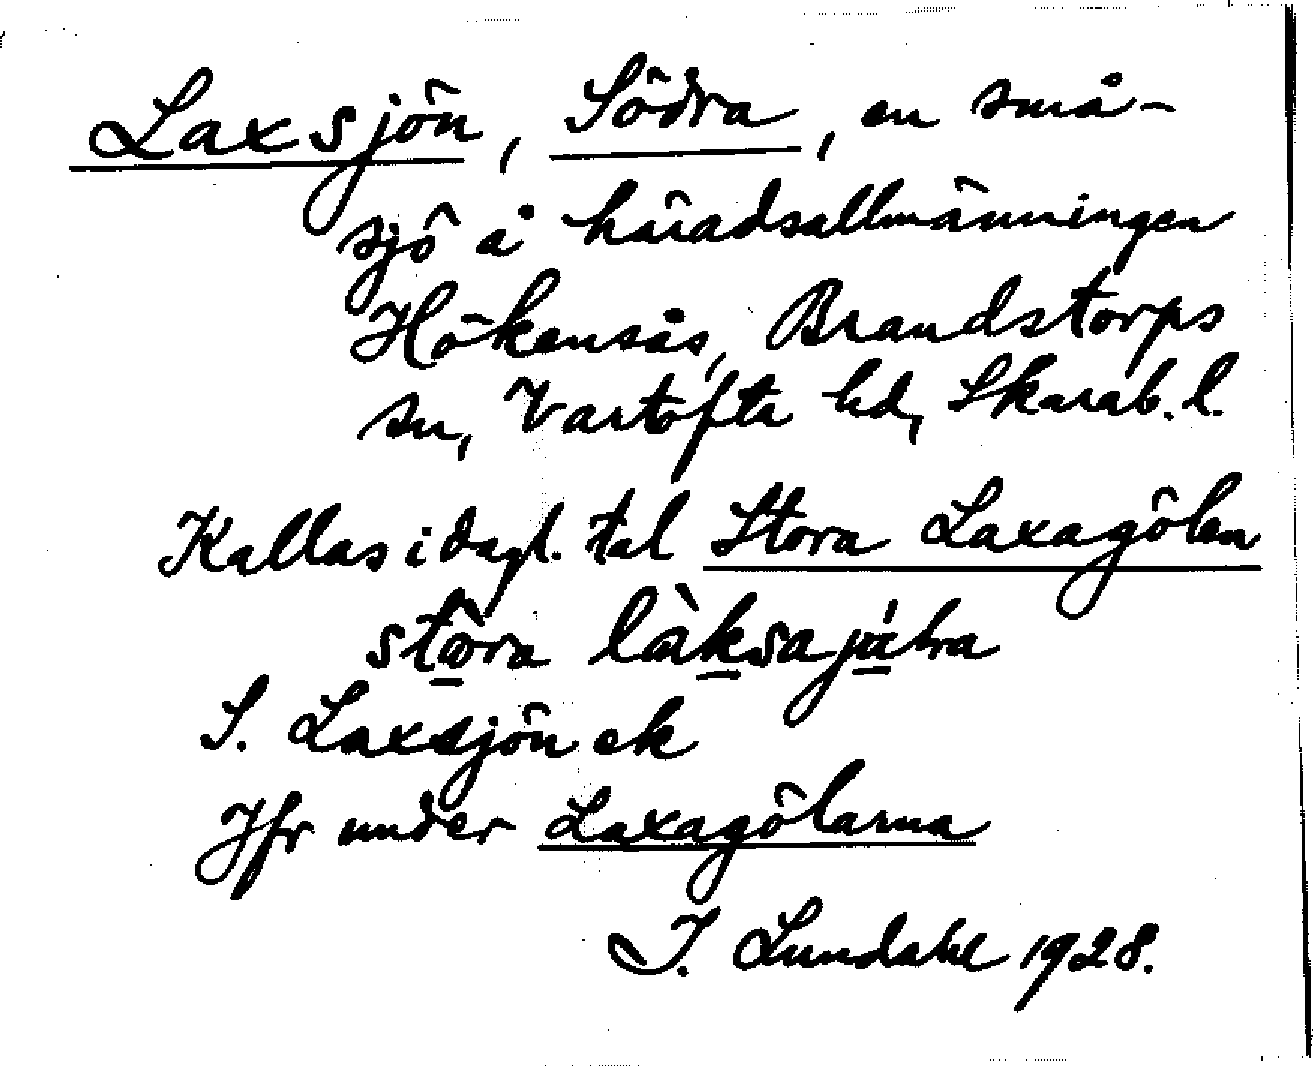 Laxsjön, Södra, en små-
sjö å häradsallmänningen
Hökensås, Brandstorps
sn, Vartofta hd, Skarab. l.
Kallas i dagl. tal Stora Laxagölen
stora
S. Laxsjön ek
Jfr under Laxagölarna
I. Lundahl 1928.